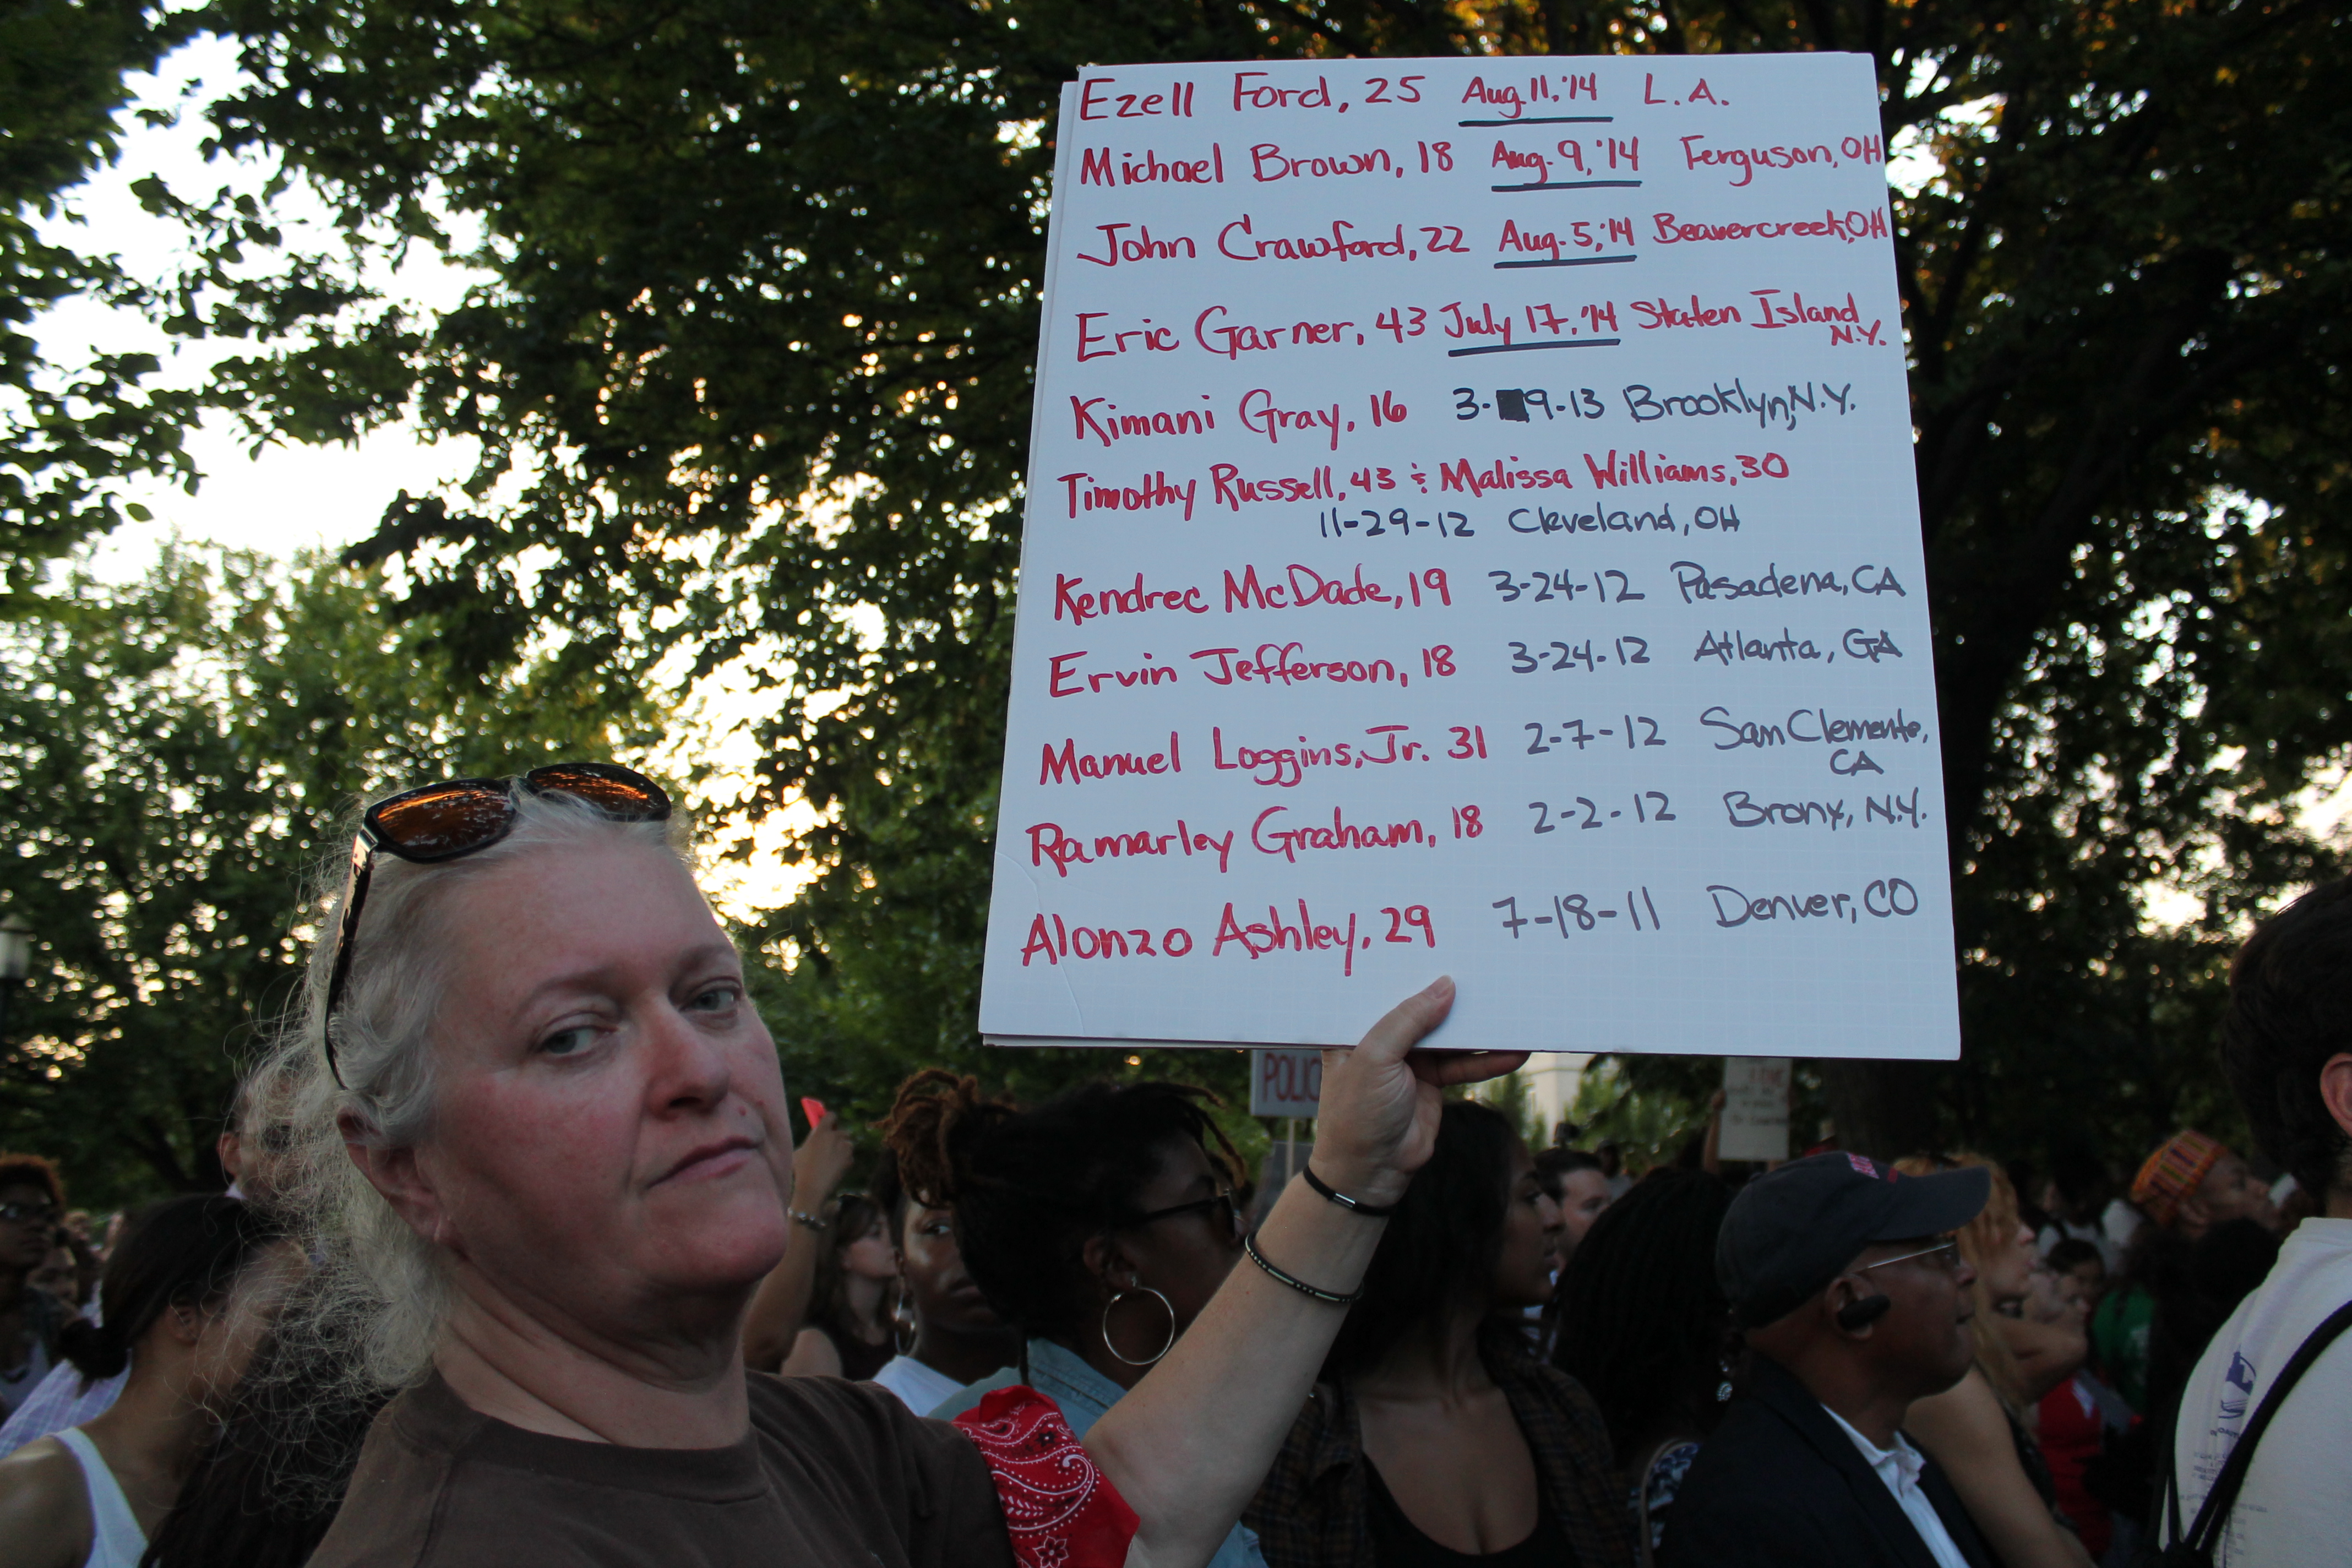 Ezell Ford, 25 Aug. 11, '14 L.A.
Michael Brown, 18 Aug. 9, '14 Ferguson, OH
John Crawford, 22 Aug. 5, '14 Beavercreek, OH
Eric Garner, 43 July 17, '14 Staten Island
N.Y.
Kimani Gray, 16 3-9-13 Brooklyn, N.Y.
Timothy Russell, 43 & Malissa Williams, 30
11-29-12 Cleveland, OH
Kendrec McDade, 19 3-24-12 Pasadena, CA
Ervin Jefferson, 18 3-24-12 Atlanta, GA
Manuel Loggins, Jr. 31 2-7-12 San Clemente,
CA
Ramarley Graham, 18 2-2-12 Bronx, N.Y.
Alonzo Ashley, 29 7-18-11 Denver, CO